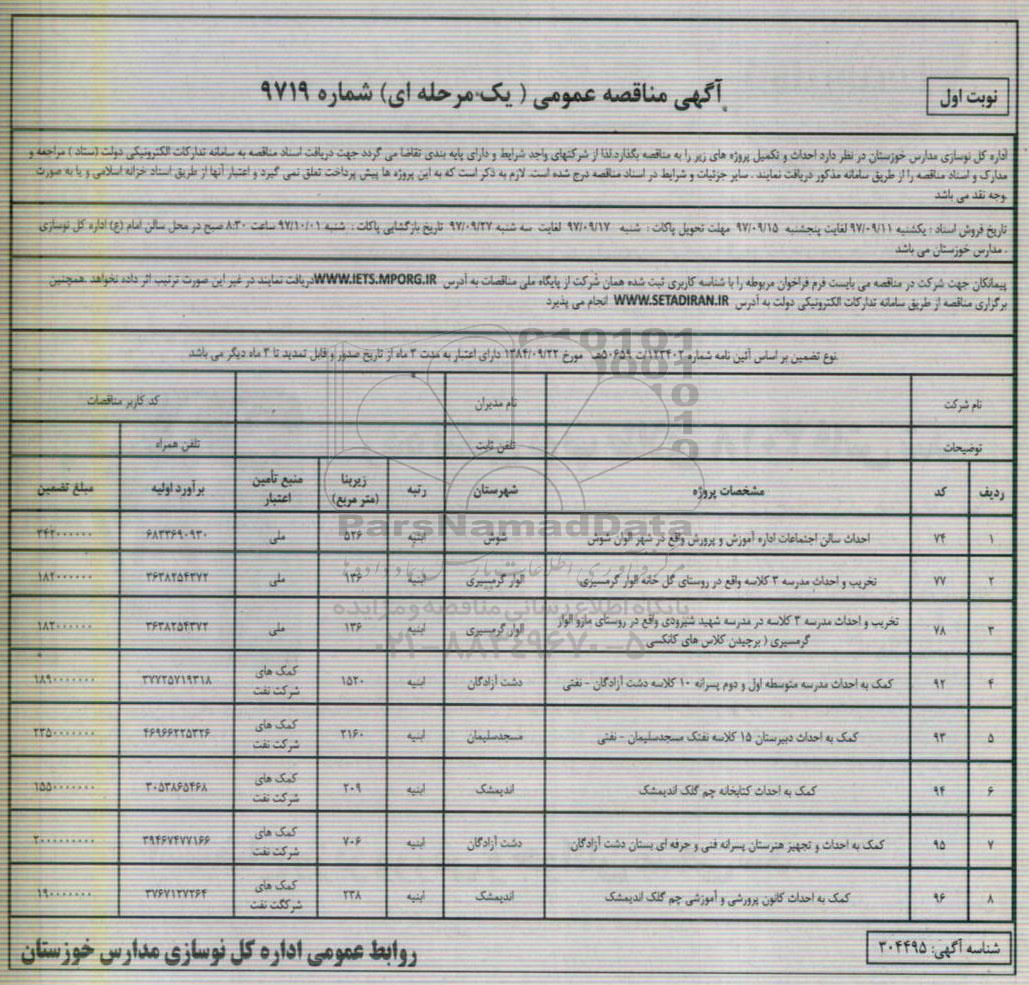 نوبت اول
آگهی مناقصه عمومی ( یک مرحله ای) شماره ۹۷۱۹
اداره کل نوسازی مدارس خوزستان در نظر دارد احداث و تکمیل پروژه های زیر را به مناقصه بگذارد.لذا از شرکتهای واجد شرایط و دارای پایه بندی تقاضا می گردد جهت دریافت اسناد مناقصه به سامانه تدارکات الکترونیکی دولت (ستاد ) مراجعه و
مدارک و اسناد مناقصه را از طریق سامانه مذکور دریافت نمایند . سایر جزئیات و شرایط در اسناد مناقصه درج شده است. لازم به ذکر است که به این پروژه ها پیش پرداخت تعلق نمی گیرد و اعتبار آنها از طریق اسناد خزانه اسلامی و یا به صورت
وجه نقد می باشد.
تاریخ فروش اسناد : یکشنبه ۹۷/۰۹/۱۱ لغایت پنجشنبه ۹۷/۰۹/۱۵ مهلت تحویل پاکات : شنبه ۹۷/۰۹/۱۷ لغایت سه شنبه ۹۷/۰۹/۲۷ تاریخ بازگشایی پاکات : شنبه ۹۷/۱۰/۰۱ ساعت ۸:۳۰ صبح در محل سالن امام (ع) اداره کل نوسازی
مدارس خوزستان می باشد .
پیمانکاان جهت شرکت در مناقصه می بایست فرم فراخوان مربوطه را با شناسه کاربری ثبت شده همان شرکت از پایگاه ملی مناقصات به آدرس WWW.IETS.MPORG.IR دریافت نمایند در غیر این صورت ترتیب اثر داده نخواهد .همچنین
برگزاری مناقصه از طریق سامانه تدارکات الکترونیکی دولت به آدرس WWW.SETADIRAN.IR انجام می پذیرد
نوع تضمین بر اساس آئین نامه شماره ۱۲۳۴۰۲/ت ۵۰۶۵۹هـ مورخ ۱۳۸۴/۰۹/۲۲ دارای اعتبار به مدت ۳ ماه از تاریخ صدور و قابل تمدید تا ۳ ماه دیگر می باشد.
نام شرکت نام مدیران کد کاربر مناقصات
توضیحات تلفن ثابت تلفن همراه
ردیف کد مشخصات پروژه شهرستان رتبه زیربنا (متر مربع) منبع تأمین اعتبار برآورد اولیه مبلغ تضمین
۱ ۷۴ احداث سالن اجتماعات اداره آموزش و پرورش واقع در شهر الوان شوش شوش ابنیه ۵۲۶ ملی ۶۸۳۳۶۹۰۹۳۰ ۳۴۲۰۰۰۰۰۰
۲ ۷۷ تخریب و احداث مدرسه ۳ کلاسه واقع در روستای گل خانه الوار گرمسیری الوار گرمسیری ابنیه ۱۳۶ ملی ۳۶۳۸۲۵۴۳۷۲ ۱۸۲۰۰۰۰۰۰
۳ ۷۸ تخریب و احداث مدرسه ۳ کلاسه در مدرسه شهید شیرودی واقع در روستای مازو الوار
گرمسیری ( برچیدن کلاس های کانکسی الوار گرمسیری ابنیه ۱۳۶ ملی ۳۶۳۸۲۵۴۳۷۲ ۱۸۲۰۰۰۰۰۰
۴ ۹۲ کمک به احداث مدرسه متوسطه اول و دوم پسرانه ۱۰ کلاسه دشت آزادگان - نفتی دشت آزادگان ابنیه ۱۵۲۰ کمک های شرکت نفت ۳۷۷۲۵۷۱۹۳۱۸ ۱۸۹۰۰۰۰۰۰۰
۵ ۹۳ کمک به احداث دبیرستان ۱۵ کلاسه نفتک مسجدسلیمان - نفتی مسجدسلیمان ابنیه ۲۱۶۰ کمک های شرکت نفت ۴۶۹۶۶۲۲۵۳۲۶ ۲۳۵۰۰۰۰۰۰۰
۶ ۹۴ کمک به احداث کتابخانه چم گلک اندیمشک اندیمشک ابنیه ۲۰۹ کمک های شرکت نفت ۳۰۵۳۸۶۵۴۶۸ ۱۵۵۰۰۰۰۰۰۰
۷ ۹۵ کمک به احداث و تجهیز هنرستان پسرانه فنی و حرفه ای بستان دشت آزادگان دشت آزادگان ابنیه ۷۰۶ کمک های شرکت نفت ۳۹۴۶۷۴۷۷۱۶۶ ۲۰۰۰۰۰۰۰۰۰
۸ ۹۶ کمک به احداث کانون پرورشی و آموزشی چم گلک اندیمشک اندیمشک ابنیه ۲۳۸ کمک های شرکگت نفت ۳۷۶۷۱۲۷۲۶۴ ۱۹۰۰۰۰۰۰۰
شناسه آگهی: ۳۰۴۴۹۵
روابط عمومی اداره کل نوسازی مدارس خوزستان
ParsNamadData
پایگاه اطلاع رسانی مناقصه و مزایده
۰۲۱-۸۸۳۴۹۶۷۰-۵